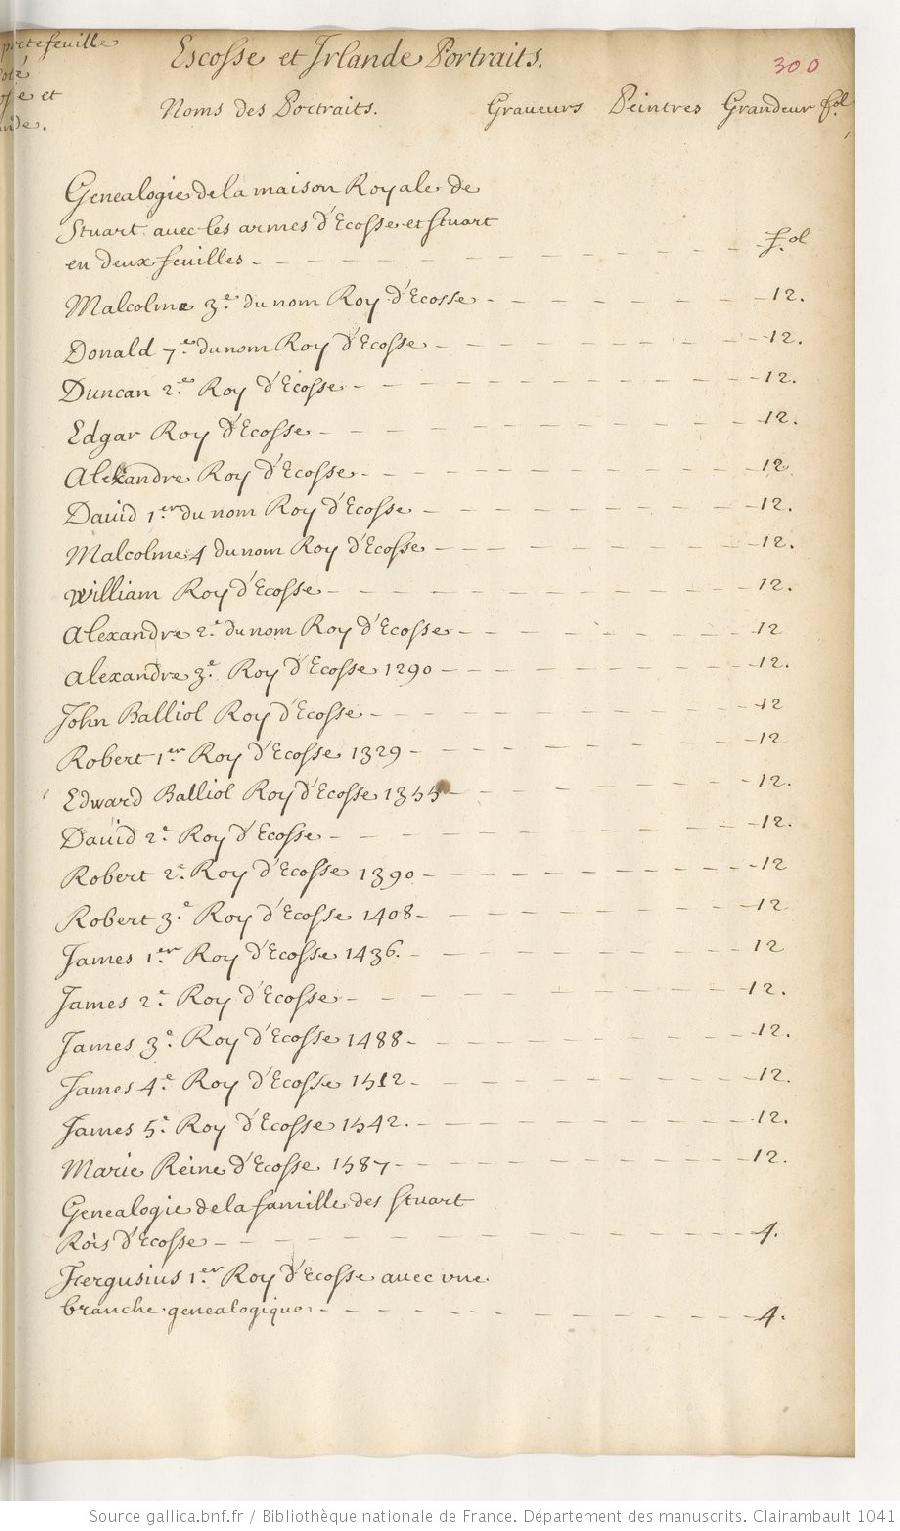 portefeuille
Escosse et Irlande Portraits.
300
et
Noms des Portraits. Graveurs Peintres Grandeur fol
Genealogie de la maison Royale de
Stuart avec les armes d'Ecosse et Stuart
en deux feuilles - - - - - fol
Malcolme 3e du nom Roy d'Ecosse - - - - - 12.
Donald 7e du nom Roy d'Ecosse - - - - - 12.
Duncan 2e Roy d'Ecosse - - - - - 12.
Edgar Roy d'Ecosse - - - - - 12.
Alexandre Roy d'Ecosse - - - - - 12
David 1er du nom Roy d'Ecosse - - - - - 12.
Malcolme 4 du nom Roy d'Ecosse - - - - - 12.
William Roy d'Ecosse - - - - - 12.
Alexandre 2e du nom Roy d'Ecosse - - - - - 12
Alexandre 3e Roy d'Ecosse 1290 - - - - - 12.
John Balliol Roy d'Ecosse - - - - - 12
Robert 1er Roy d'Ecosse 1329 - - - - - 12
Edward Balliol Roy d'Ecosse - - - - - 12.
David 2e Roy d'Ecosse - - - - - 12.
Robert 2e Roy d'Ecosse 1390 - - - - - 12
Robert 3e Roy d'Ecosse 1408 - - - - - 12
James 1er Roy d'Ecosse 1436. - - - - - 12
James 2e Roy d'Ecosse - - - - - 12.
James 3e Roy d'Ecosse 1488 - - - - - 12.
James 4e Roy d'Ecosse 1512 - - - - - 12.
James 5e Roy d'Ecosse 1542. - - - - - 12.
Marie Reine d'Ecosse 1587 - - - - - 12.
Genealogie de la famille des Stuart
Rois d'Ecosse - - - - - 4.
Fergusius 1er Roy d'Ecosse avec une
branche genealogique - - - - - 4.
Source gallica.bnf.fr / Bibliothèque nationale de France. Département des manuscrits. Clairambault 1041